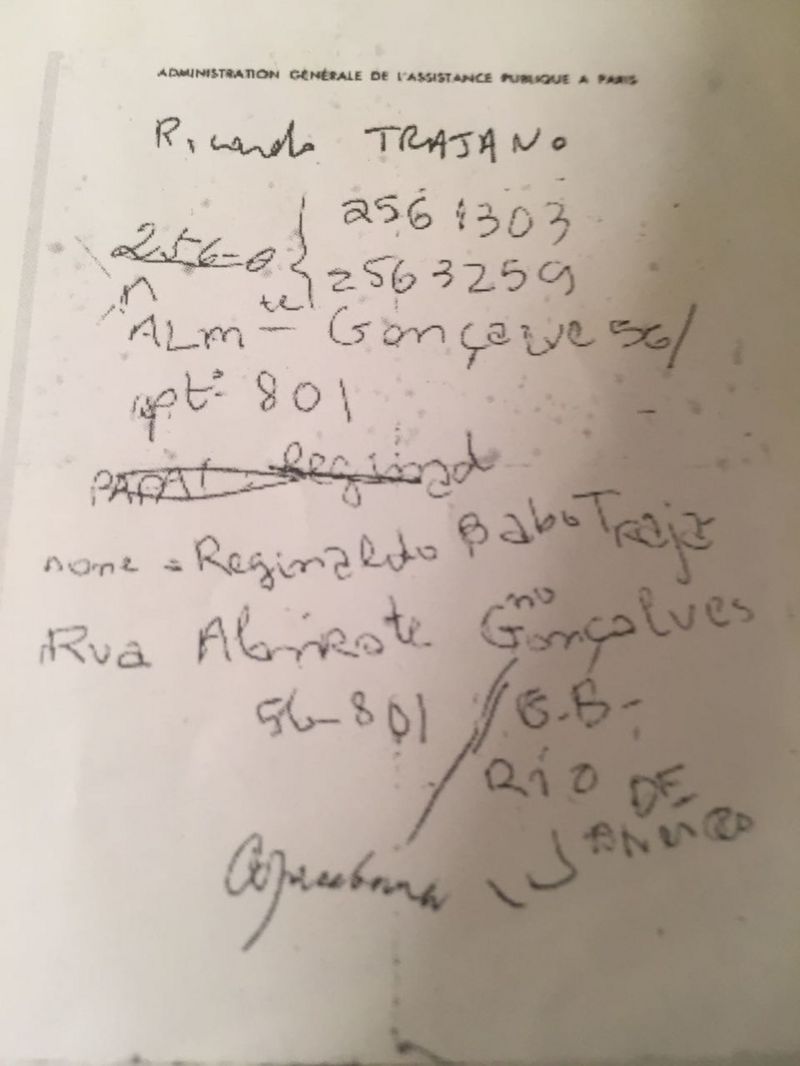 ADMINISTRATION GÉNÉRALE DE L'ASSISTANCE PUBLIQUE A PARIS
Ricardo TRAJANO
256 1303
256-0
256 3259
te
ALM - Gonçalve 56/
aptº 801
PAPAI Reginald
nome = Reginaldo Babo Traja
no
Rua Almirante Gonçalves
56-801 // G.B-
RIO DE
JANEIRO
Copacabana